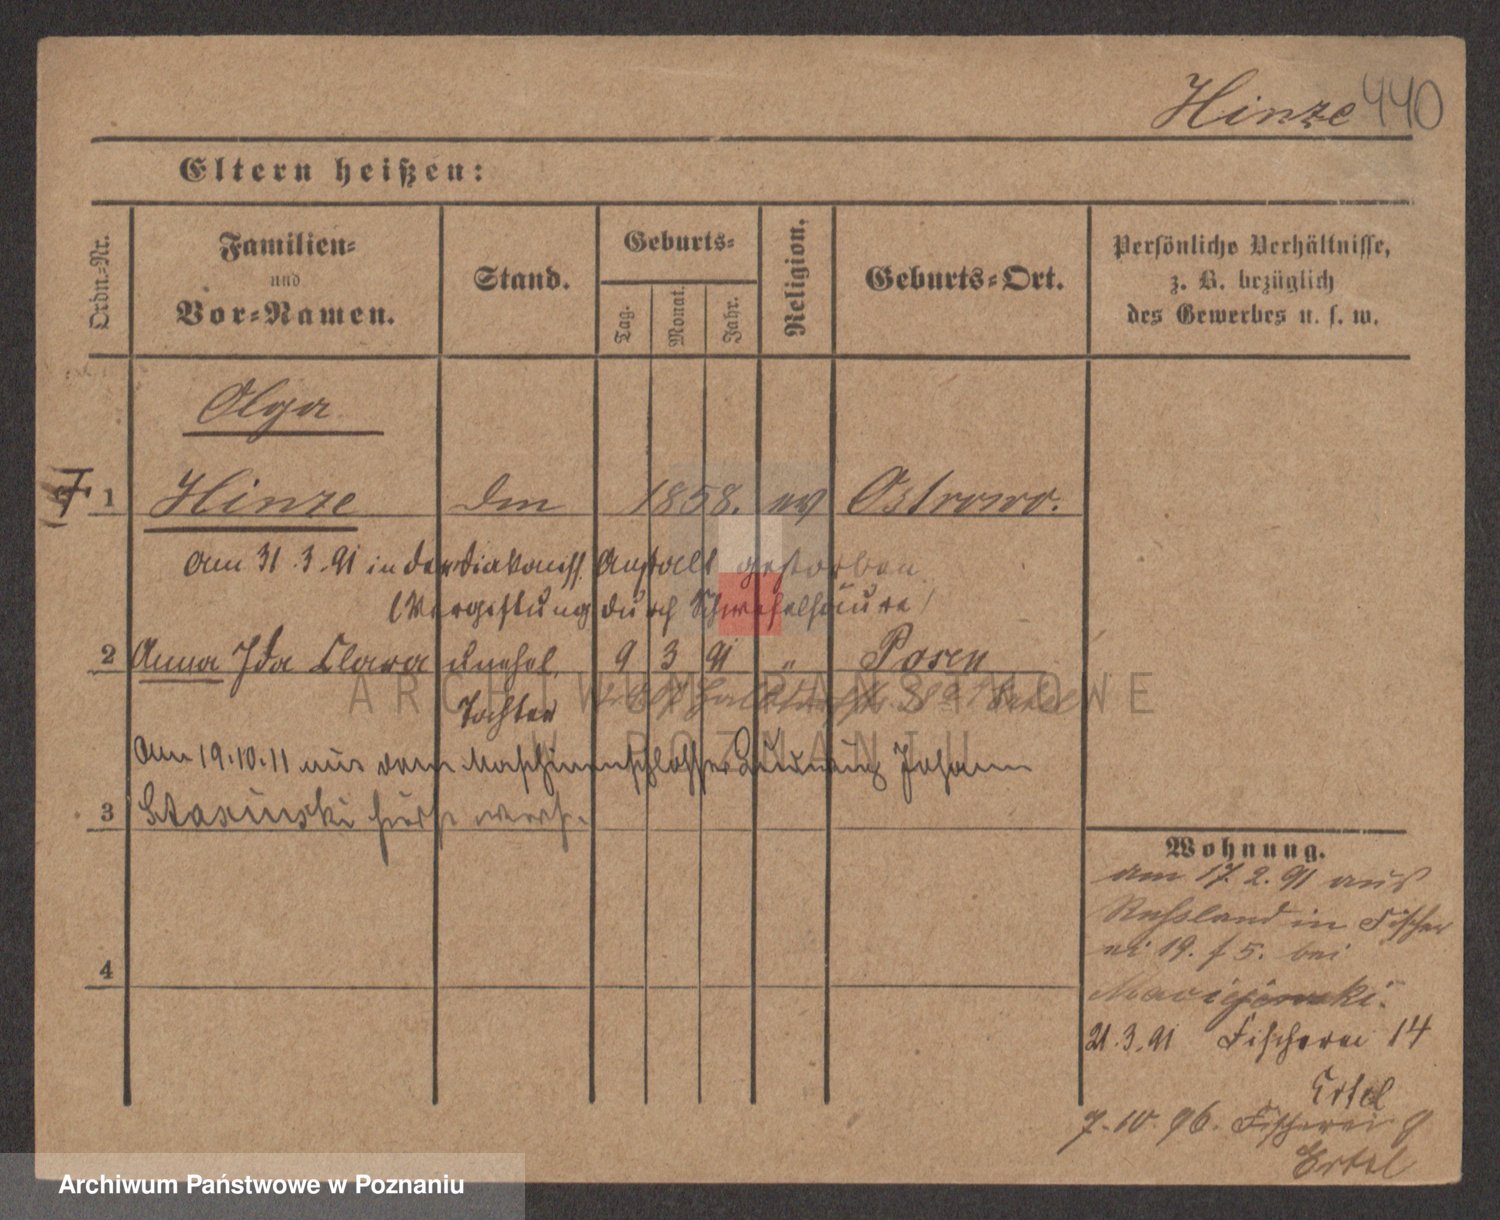 Hinze 440
Eltern heißen:
Ordn.-Nr.
Familien-
und
Vor-Namen.
Stand.
Geburts-
Tag.
Monat.
Jahr.
Religion.
Geburts-Ort.
Persönliche Verhältnisse,
z. B. bezüglich
des Gewerbes u. s. w.
Olga
1 Hinze 1858. ev Ostrowo.
Am 31.3.91 in der Diakoniss. Anstalt gestorben
(Vergiftung durch Schwefelsäure)
2 Anna Ida Clara unehel. 9 3 91 " Posen
Tochter
Am 19.10.11 aus dem Maschinenschlosser Johann
3 Stasinski
4
Wohnung.
am 17.2.91 aus
Russland in Fischer
ei 19. f 5. bei
Maciejewski.
21.3.91 Fischerei 14
Ertel
7.10.96. Fischerei 9
Ertel
ARCHIWUM PAŃSTWOWE
W POZNANIU
Archiwum Państwowe w Poznaniu